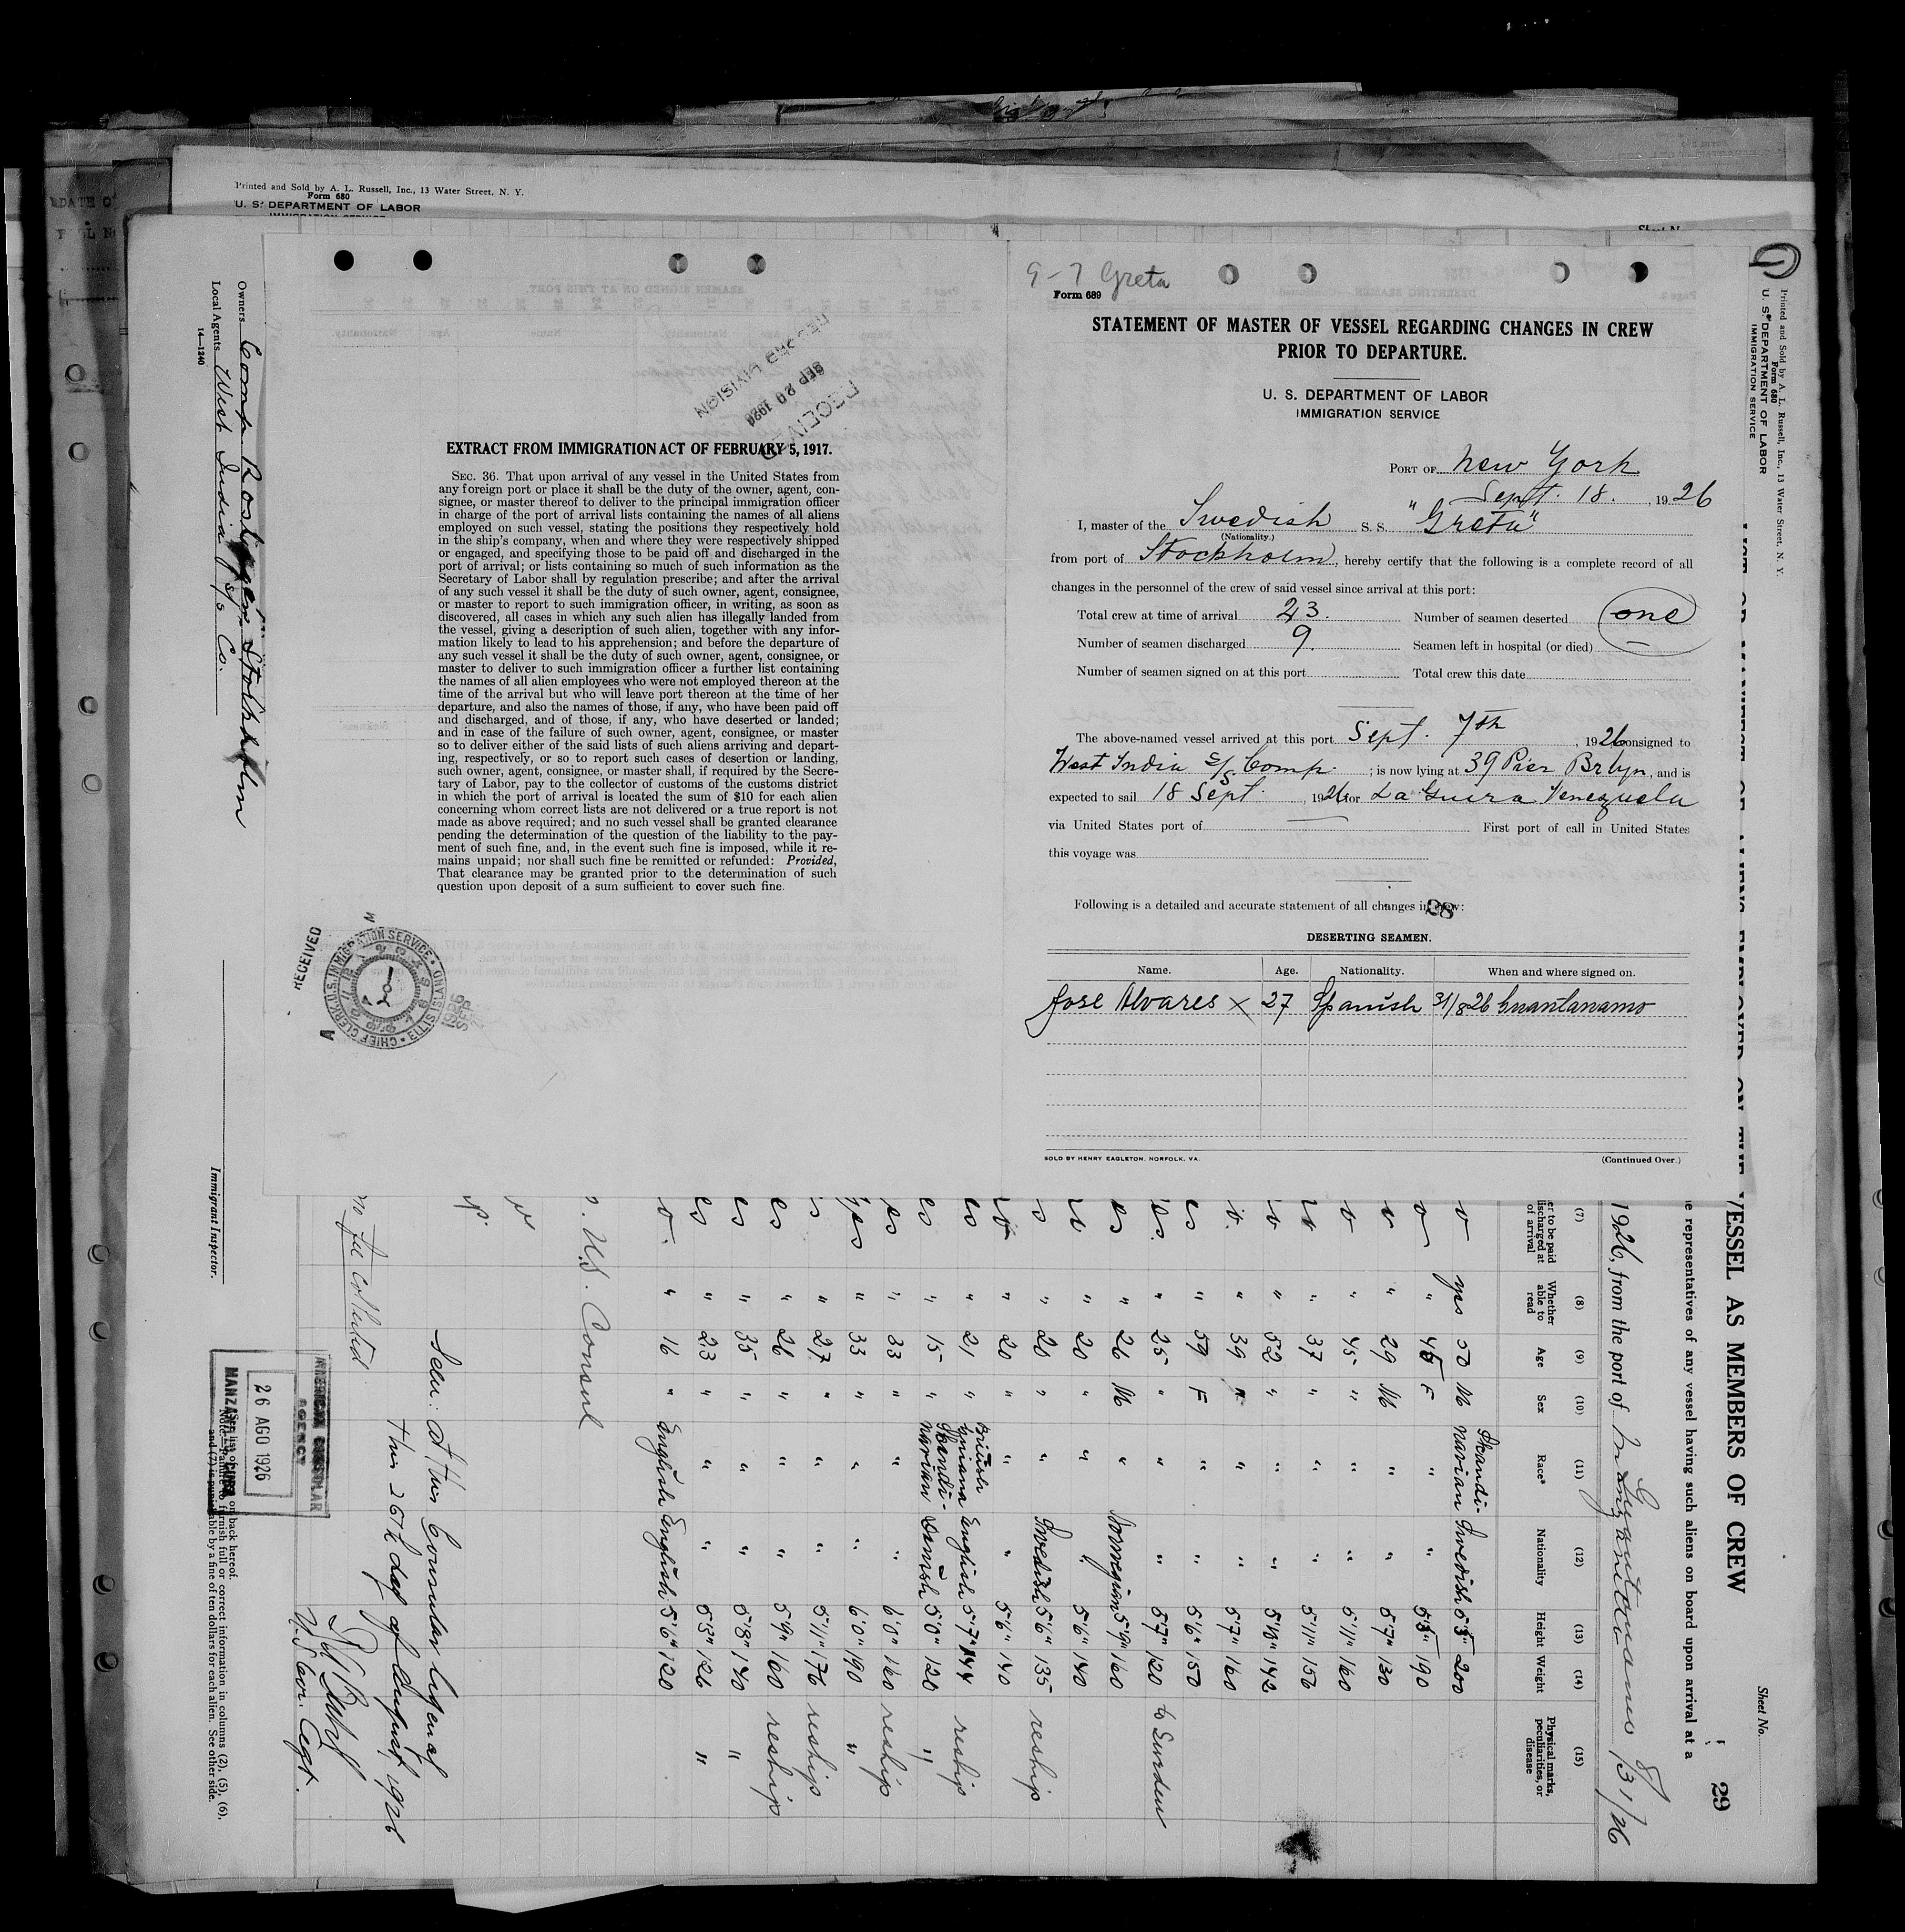 Printed and Sold by A. L. Russell, Inc., 13 Water Street, N. Y.
Form 680
U. S. DEPARTMENT OF LABOR
IMMIGRATION SERVICE
Owners
Stockholm
Local Agents West India S/S Co.
14—1240
Immigrant Inspector.
RECORD DIVISION
SEP 20 1926
RECEIVED
EXTRACT FROM IMMIGRATION ACT OF FEBRUARY 5, 1917.
SEC. 36. That upon arrival of any vessel in the United States from
any foreign port or place it shall be the duty of the owner, agent, con-
signee, or master thereof to deliver to the principal immigration officer
in charge of the port of arrival lists containing the names of all aliens
employed on such vessel, stating the positions they respectively hold
in the ship's company, when and where they were respectively shipped
or engaged, and specifying those to be paid off and discharged in the
port of arrival; or lists containing so much of such information as the
Secretary of Labor shall by regulation prescribe; and after the arrival
of any such vessel it shall be the duty of such owner, agent, consignee,
or master to report to such immigration officer, in writing, as soon as
discovered, all cases in which any such alien has illegally landed from
the vessel, giving a description of such alien, together with any infor-
mation likely to lead to his apprehension; and before the departure of
any such vessel it shall be the duty of such owner, agent, consignee, or
master to deliver to such immigration officer a further list containing
the names of all alien employees who were not employed thereon at the
time of the arrival but who will leave port thereon at the time of her
departure, and also the names of those, if any, who have been paid off
and discharged, and of those, if any, who have deserted or landed;
and in case of the failure of such owner, agent, consignee, or master
so to deliver either of the said lists of such aliens arriving and depart-
ing, respectively, or so to report such cases of desertion or landing,
such owner, agent, consignee, or master shall, if required by the Secre-
tary of Labor, pay to the collector of customs of the customs district
in which the port of arrival is located the sum of $10 for each alien
concerning whom correct lists are not delivered or a true report is not
made as above required; and no such vessel shall be granted clearance
pending the determination of the question of the liability to the pay-
ment of such fine, and, in the event such fine is imposed, while it re-
mains unpaid; nor shall such fine be remitted or refunded: Provided,
That clearance may be granted prior to the determination of such
question upon deposit of a sum sufficient to cover such fine.
RECEIVED
CHIEF CLERK, U.S. IMMIGRATION SERVICE • ELLIS ISLAND
1926
SEP
9-7 Greta
Form 689
STATEMENT OF MASTER OF VESSEL REGARDING CHANGES IN CREW
PRIOR TO DEPARTURE.
U. S. DEPARTMENT OF LABOR
IMMIGRATION SERVICE
PORT OF New York
Sept. 18. , 1926
I, master of the Swedish S. S. "Greta"
(Nationality.)
from port of Stockholm, hereby certify that the following is a complete record of all
changes in the personnel of the crew of said vessel since arrival at this port:
Total crew at time of arrival 23. Number of seamen deserted one
Number of seamen discharged 9. Seamen left in hospital (or died) —
Number of seamen signed on at this port Total crew this date
The above-named vessel arrived at this port Sept. 7th , 1926 consigned to
West India S/S Comp. ; is now lying at 39 Pier Brlyn, and is
expected to sail 18 Sept. , 1926 for La Guira Venezuela
via United States port of — First port of call in United States
this voyage was
Following is a detailed and accurate statement of all changes in crew:
28
DESERTING SEAMEN.
Name. Age. Nationality. When and where signed on.
Jose Alvares x 27 Spanish 31/8 26 Guantanamo
SOLD BY HENRY EAGLETON, NORFOLK, VA.
(Continued Over.)
Printed and Sold by A. L. Russell, Inc., 13 Water Street, N. Y.
Form 680
U. S. DEPARTMENT OF LABOR
IMMIGRATION SERVICE
Sheet No.
29
VESSEL AS MEMBERS OF CREW
representatives of any vessel having such aliens on board upon arrival at a
1926, from the port of Guantanamo 8/31/26
(7) (8) (9) (10) (11) (12) (13) (14) (15)
to be paid discharged at of arrival
Whether able to read
Age
Sex
Race*
Nationality
Height
Weight
Physical marks, peculiarities, or disease
yes 50 M Scandinavian Swedish 5'3" 200
" F " " 190
" 29 M " " 5'7" 130
" 45 " " " 5'11" 160
" 37 " " " 5'11" 150
" 52 " " " 142
" 39 " " " 5'7" 160
" 59 F " " 5'6" 150
" 25 " " " 5'7" 120 to Sweden
" 26 M " Norwegian 5'9" 160
" 20 " " " 5'6" 140
" 20 " " Swedish 5'6" 135 reship
" 20 " " " 5'6" 140
" 21 " British Guiana English 5'7" 144 reship
" 15 " Scandinavian Danish 5'0" 120 "
" 33 " " " 6'0" 160 reship
" 33 " " " 6'0" 190 "
" 27 " " " 5'11" 176 reship
" 26 " " " 5'9" 160 reship
" 35 " " " 5'8" 140 "
" 23 " " " 5'5" 126 "
" 16 " English English 5'6" 120
U.S. Consul
Seen: At this Consular Agency
this 26th day of August, 1926
U.S. Cor. Agt.
No fee collected
AMERICAN CONSULAR
AGENCY
26 AGO 1926
See list of races on back hereof.
furnish full or correct information in columns (2), (5), (6),
and (7) is punishable by a fine of ten dollars for each alien. See other side.